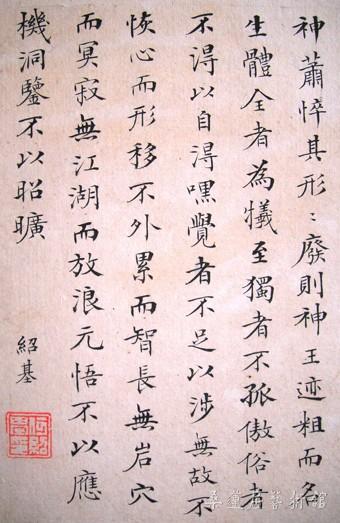 神蕭悴其形〻廢則神王迹粗而名
生體全者為犧至獨者不孤傲俗者
不得以自得嘿覺者不足以涉無故不
恢心而形移不外累而智長無岩穴
而冥寂無江湖而放浪元悟不以應
機洞鑒不以昭曠
紹基
桑蓮居藝術館